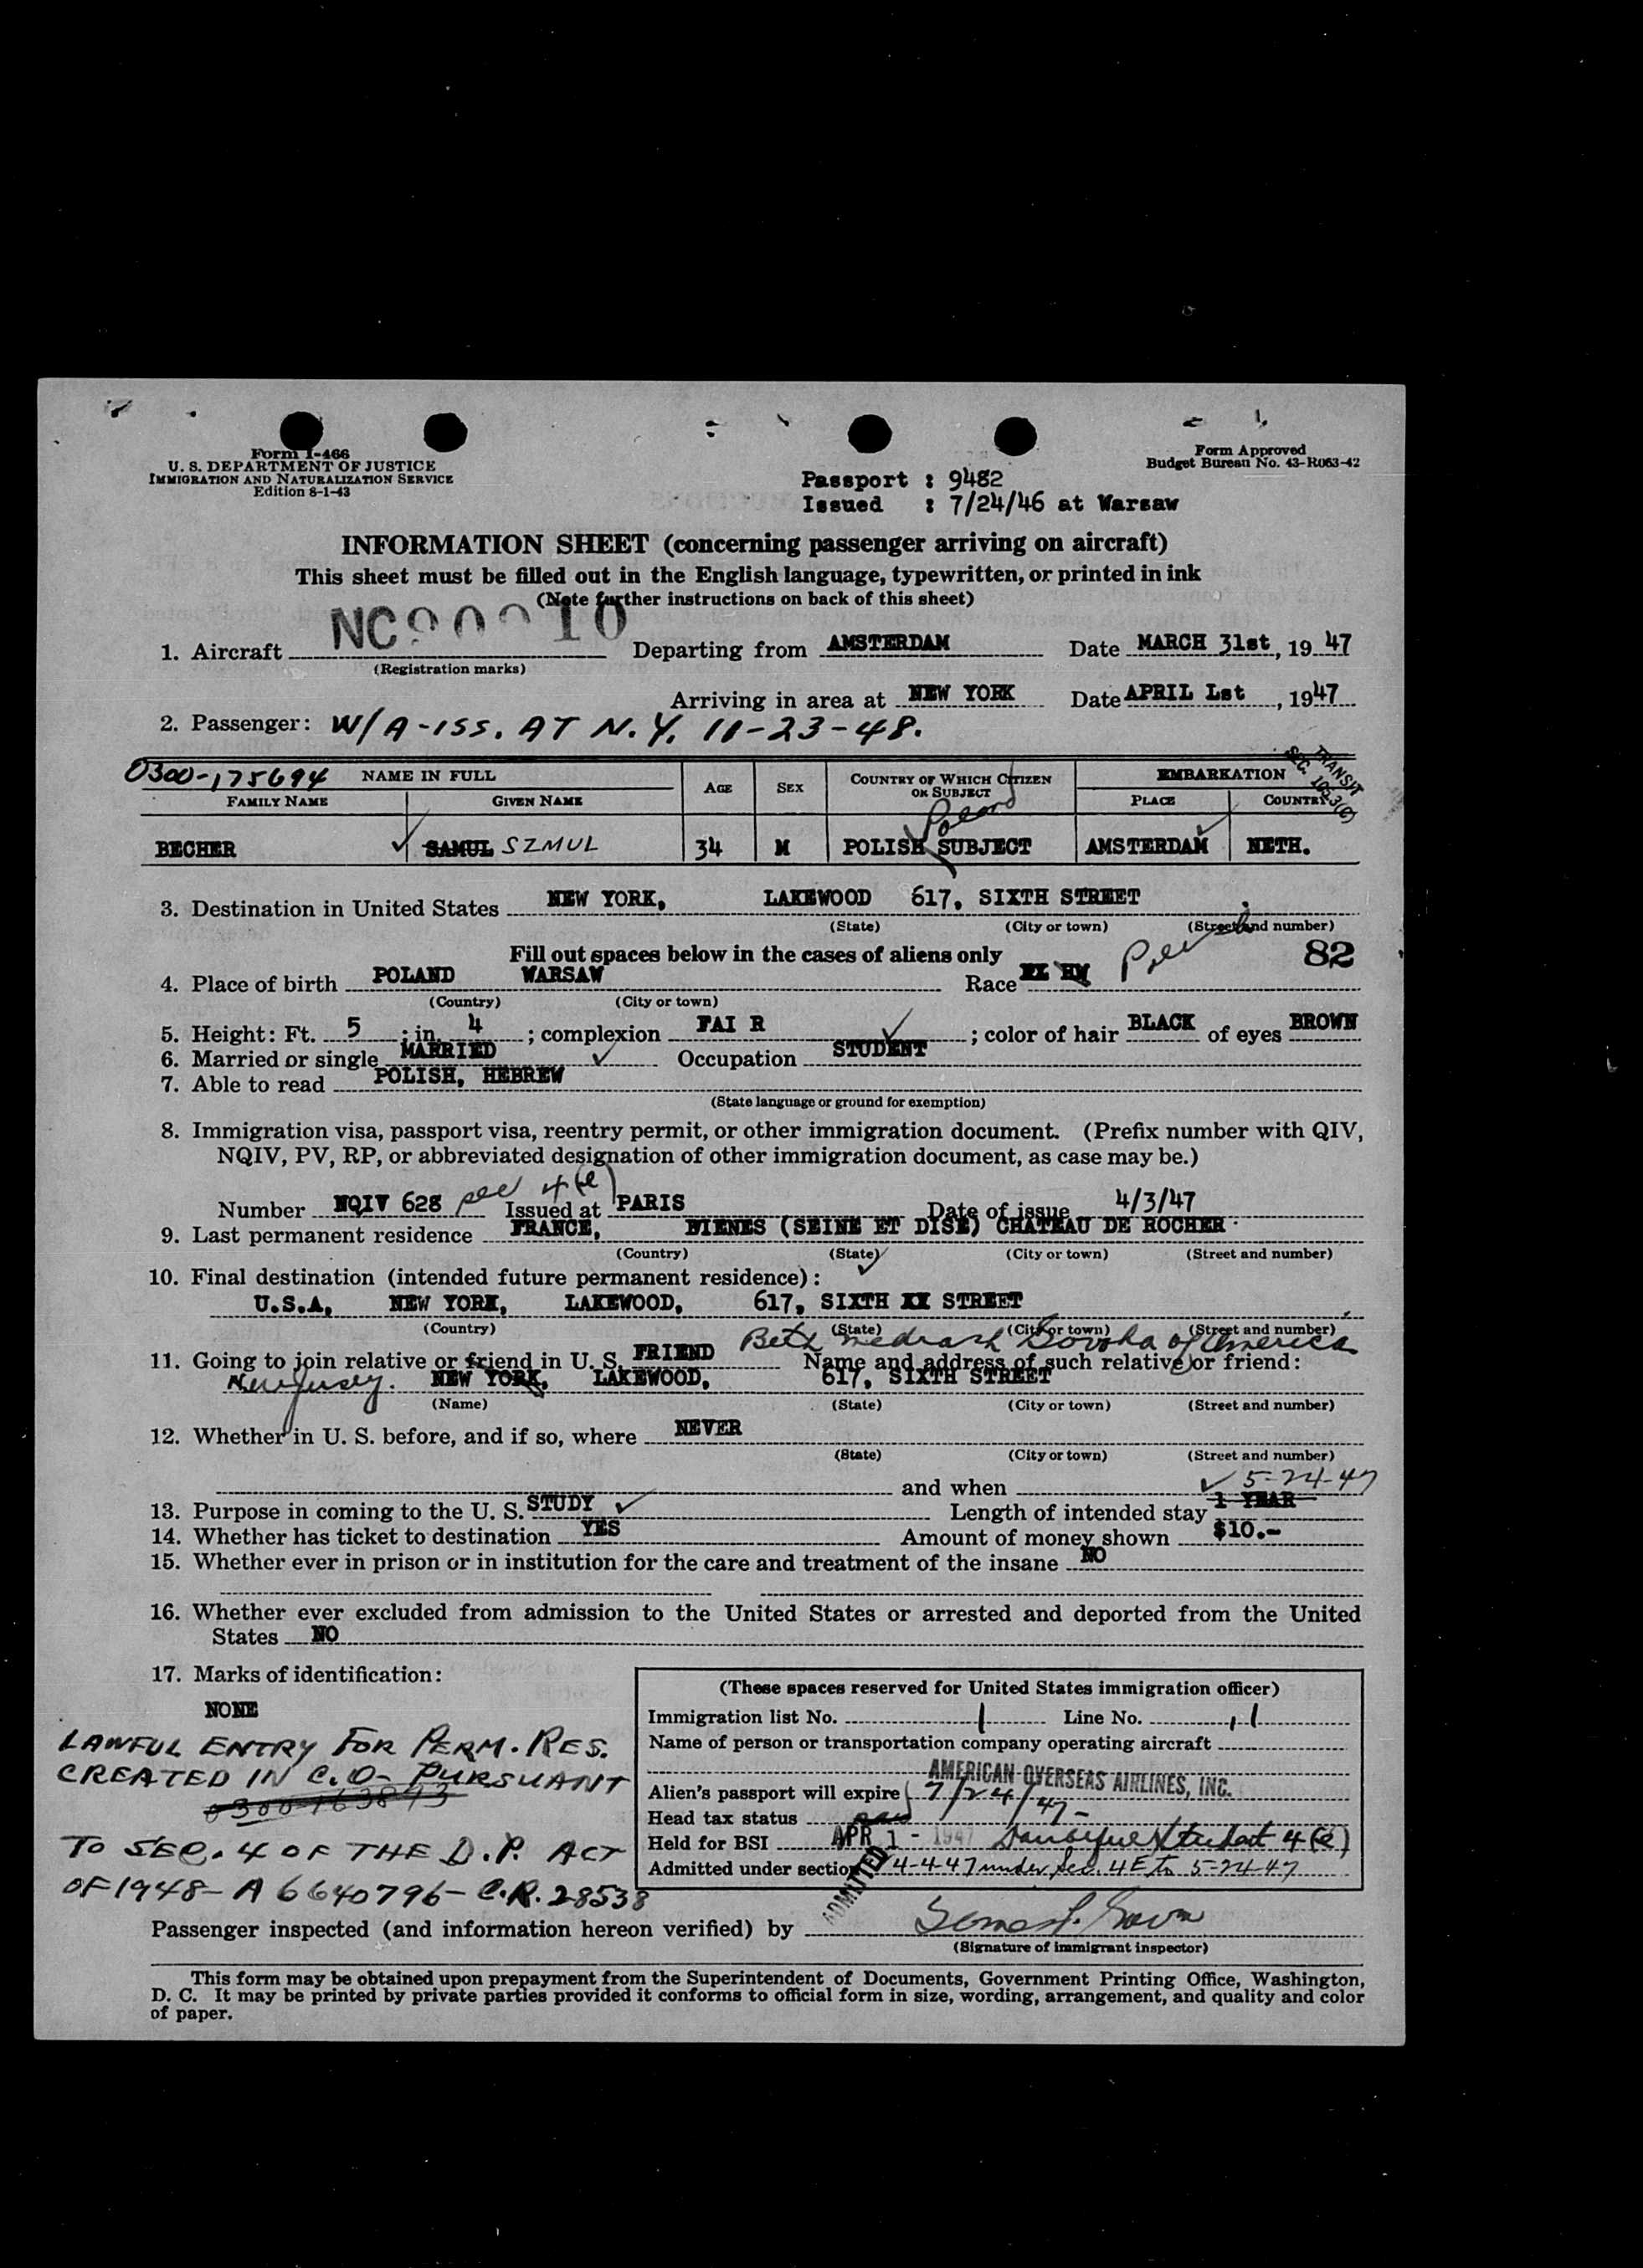 Form I-466
U. S. DEPARTMENT OF JUSTICE
IMMIGRATION AND NATURALIZATION SERVICE
Edition 8-1-43
Form Approved
Budget Bureau No. 43-R063-42
Passport : 9482
Issued : 7/24/46 at Warsaw
INFORMATION SHEET (concerning passenger arriving on aircraft)
This sheet must be filled out in the English language, typewritten, or printed in ink
(Note further instructions on back of this sheet)
1. Aircraft NC Departing from AMSTERDAM Date MARCH 31st, 19 47
(Registration marks)
Arriving in area at NEW YORK Date APRIL Lst, 1947
2. Passenger: W/A-ISS. AT N.Y. 11-23-48.
0300-175694 NAME IN FULL AGE SEX COUNTRY OF WHICH CITIZEN OR SUBJECT EMBARKATION
TRANSIT
FAMILY NAME GIVEN NAME PLACE COUNTRY
Poland
BECHER SAMUL SZMUL 34 M POLISH SUBJECT AMSTERDAM NETH.
3. Destination in United States NEW YORK, LAKEWOOD 617, SIXTH STREET
(State) (City or town) (Street and number)
Fill out spaces below in the cases of aliens only 82
4. Place of birth POLAND WARSAW Race Polish
(Country) (City or town)
5. Height: Ft. 5 ; in. 4 ; complexion FAI R ; color of hair BLACK of eyes BROWN
6. Married or single MARRIED Occupation STUDENT
7. Able to read POLISH, HEBREW
(State language or ground for exemption)
8. Immigration visa, passport visa, reentry permit, or other immigration document. (Prefix number with QIV,
NQIV, PV, RP, or abbreviated designation of other immigration document, as case may be.)
Number NQIV 628 sec 4(e) Issued at PARIS Date of issue 4/3/47
9. Last permanent residence FRANCE, BIENES (SEINE ET DISE) CHATEAU DE ROCHER
(Country) (State) (City or town) (Street and number)
10. Final destination (intended future permanent residence):
U.S.A, NEW YORK, LAKEWOOD, 617, SIXTH XX STREET
(Country) (State) (City or town) (Street and number)
Beth Medrash Govoha of America
11. Going to join relative or friend in U. S. FRIEND Name and address of such relative or friend:
New Jersey. NEW YORK, LAKEWOOD, 617, SIXTH STREET
(Name) (State) (City or town) (Street and number)
12. Whether in U. S. before, and if so, where NEVER
(State) (City or town) (Street and number)
and when
5-24-47
13. Purpose in coming to the U. S. STUDY Length of intended stay 1 YEAR
14. Whether has ticket to destination YES Amount of money shown $10.-
15. Whether ever in prison or in institution for the care and treatment of the insane NO
16. Whether ever excluded from admission to the United States or arrested and deported from the United
States NO
17. Marks of identification:
NONE
LAWFUL ENTRY FOR PERM. RES.
CREATED IN C.O- PURSUANT
0300-163893
TO SEC. 4 OF THE D.P. ACT
OF 1948- A 6640796- C.R. 28538
(These spaces reserved for United States immigration officer)
Immigration list No. 1 Line No. 1
Name of person or transportation company operating aircraft
AMERICAN OVERSEAS AIRLINES, INC.
Alien's passport will expire 7/24/47-
Head tax status
Held for BSI APR 1 - 1947 4(e)
Admitted under section 4-4-47 under Sec. 4E to 5-24-47
ADMITTED
Passenger inspected (and information hereon verified) by
(Signature of immigrant inspector)
This form may be obtained upon prepayment from the Superintendent of Documents, Government Printing Office, Washington,
D. C. It may be printed by private parties provided it conforms to official form in size, wording, arrangement, and quality and color
of paper.